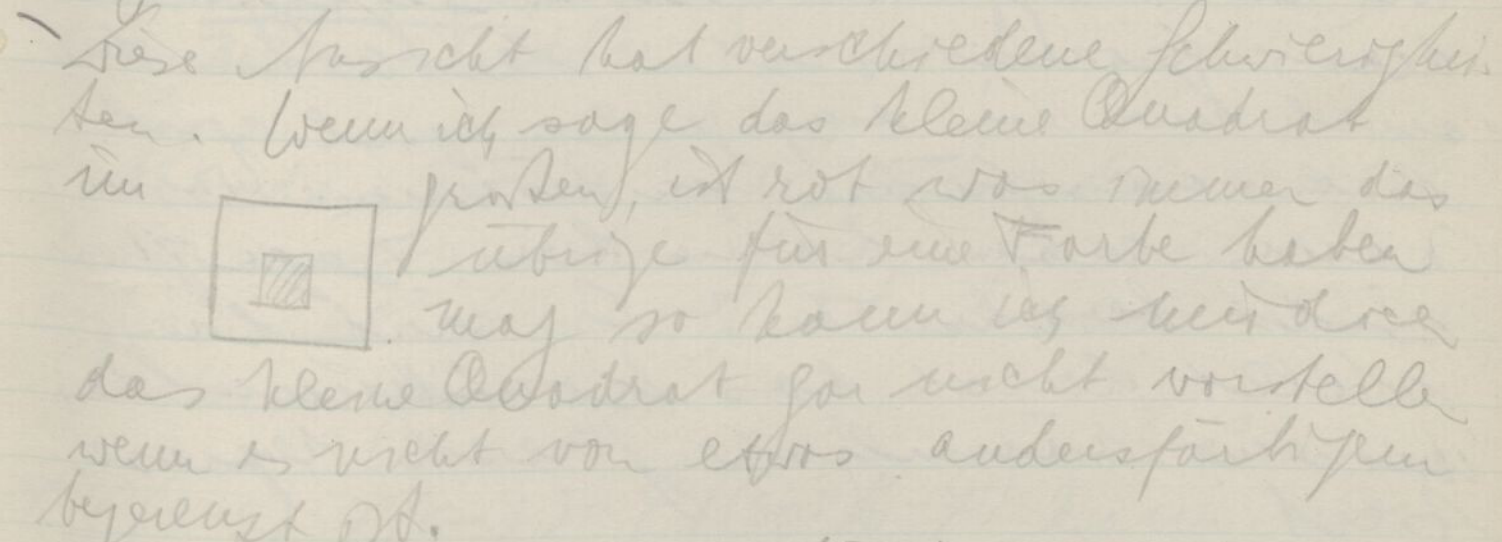 Diese Ansicht hat verschiedene Schwierigkei-
ten. Wenn ich sage das kleine Quadrat
im großen, ist rot was immer das
übrige für eine Farbe haben
mag so kann ich mir doch
das kleine Quadrat gar nicht vorstellen
wenn es nicht von etwas andersfärbigem
begrenzt ist.